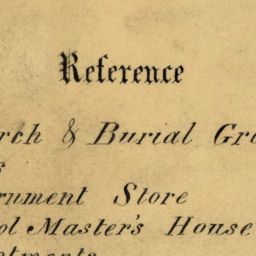 Reference
rch & Burial Gro
s
rnment Store
ol Master's House
otments